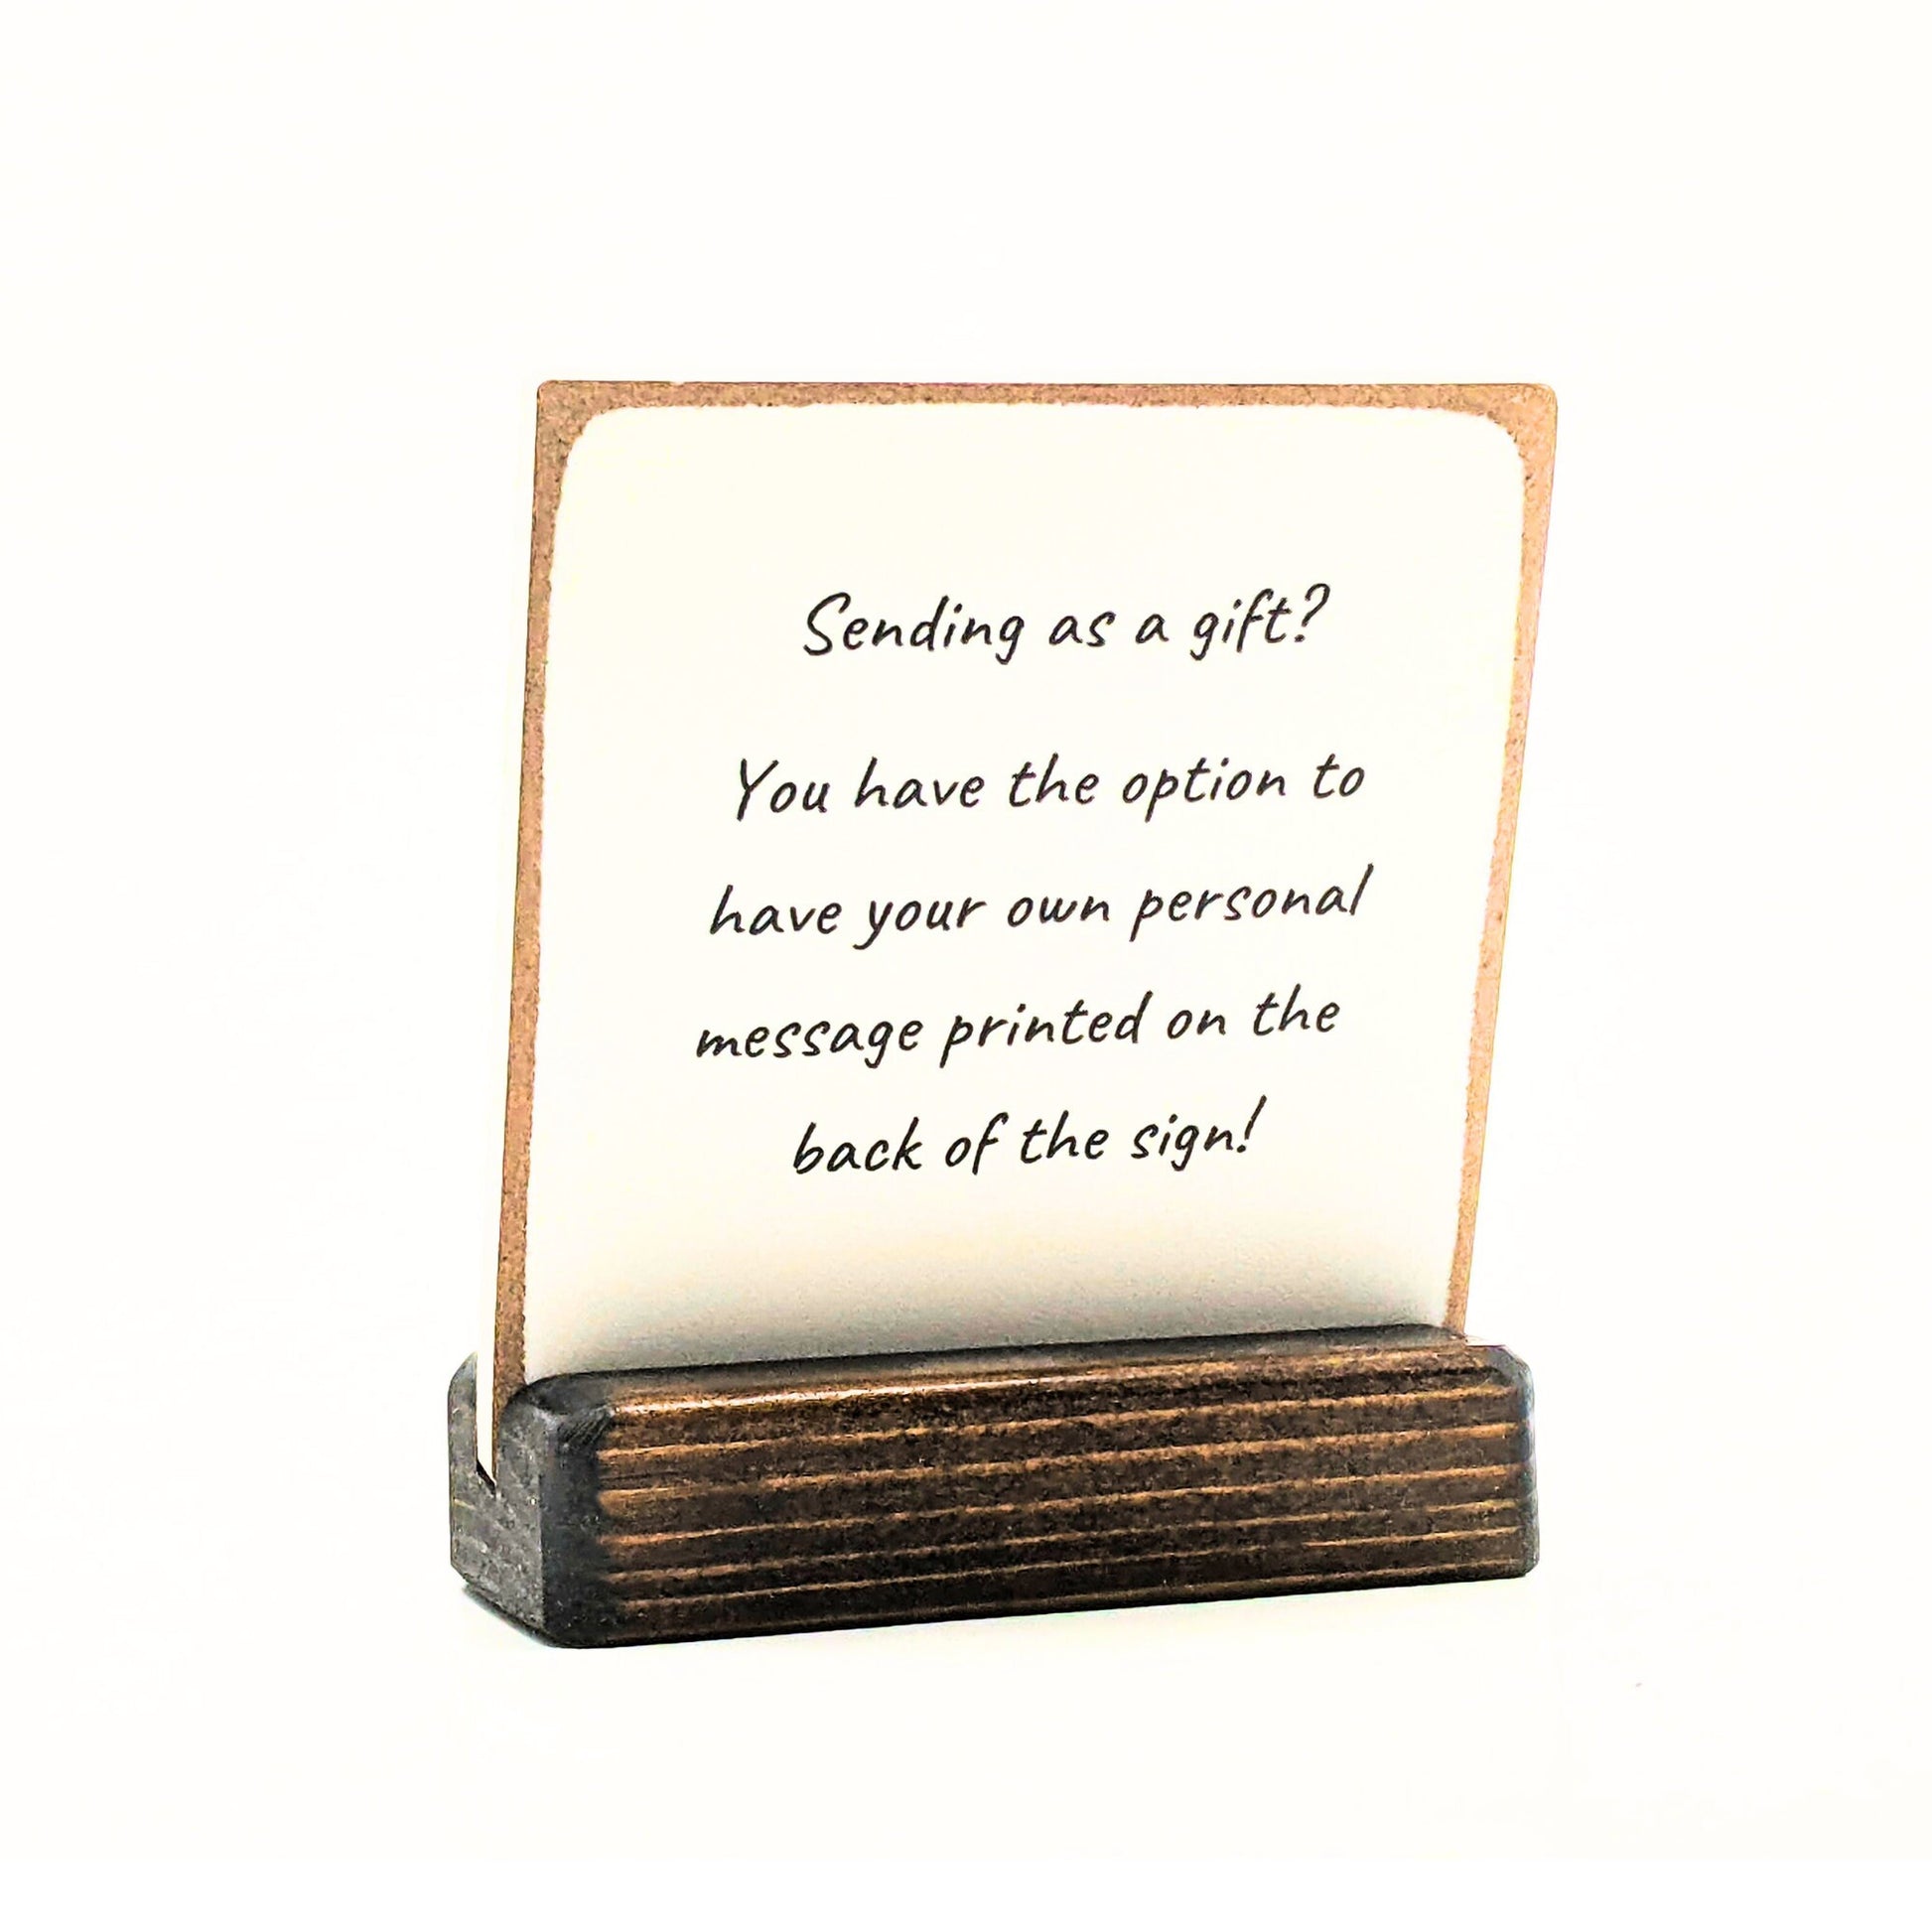 Sending as a gift?
You have the option to
have your own personal
message printed on the
back of the sign!